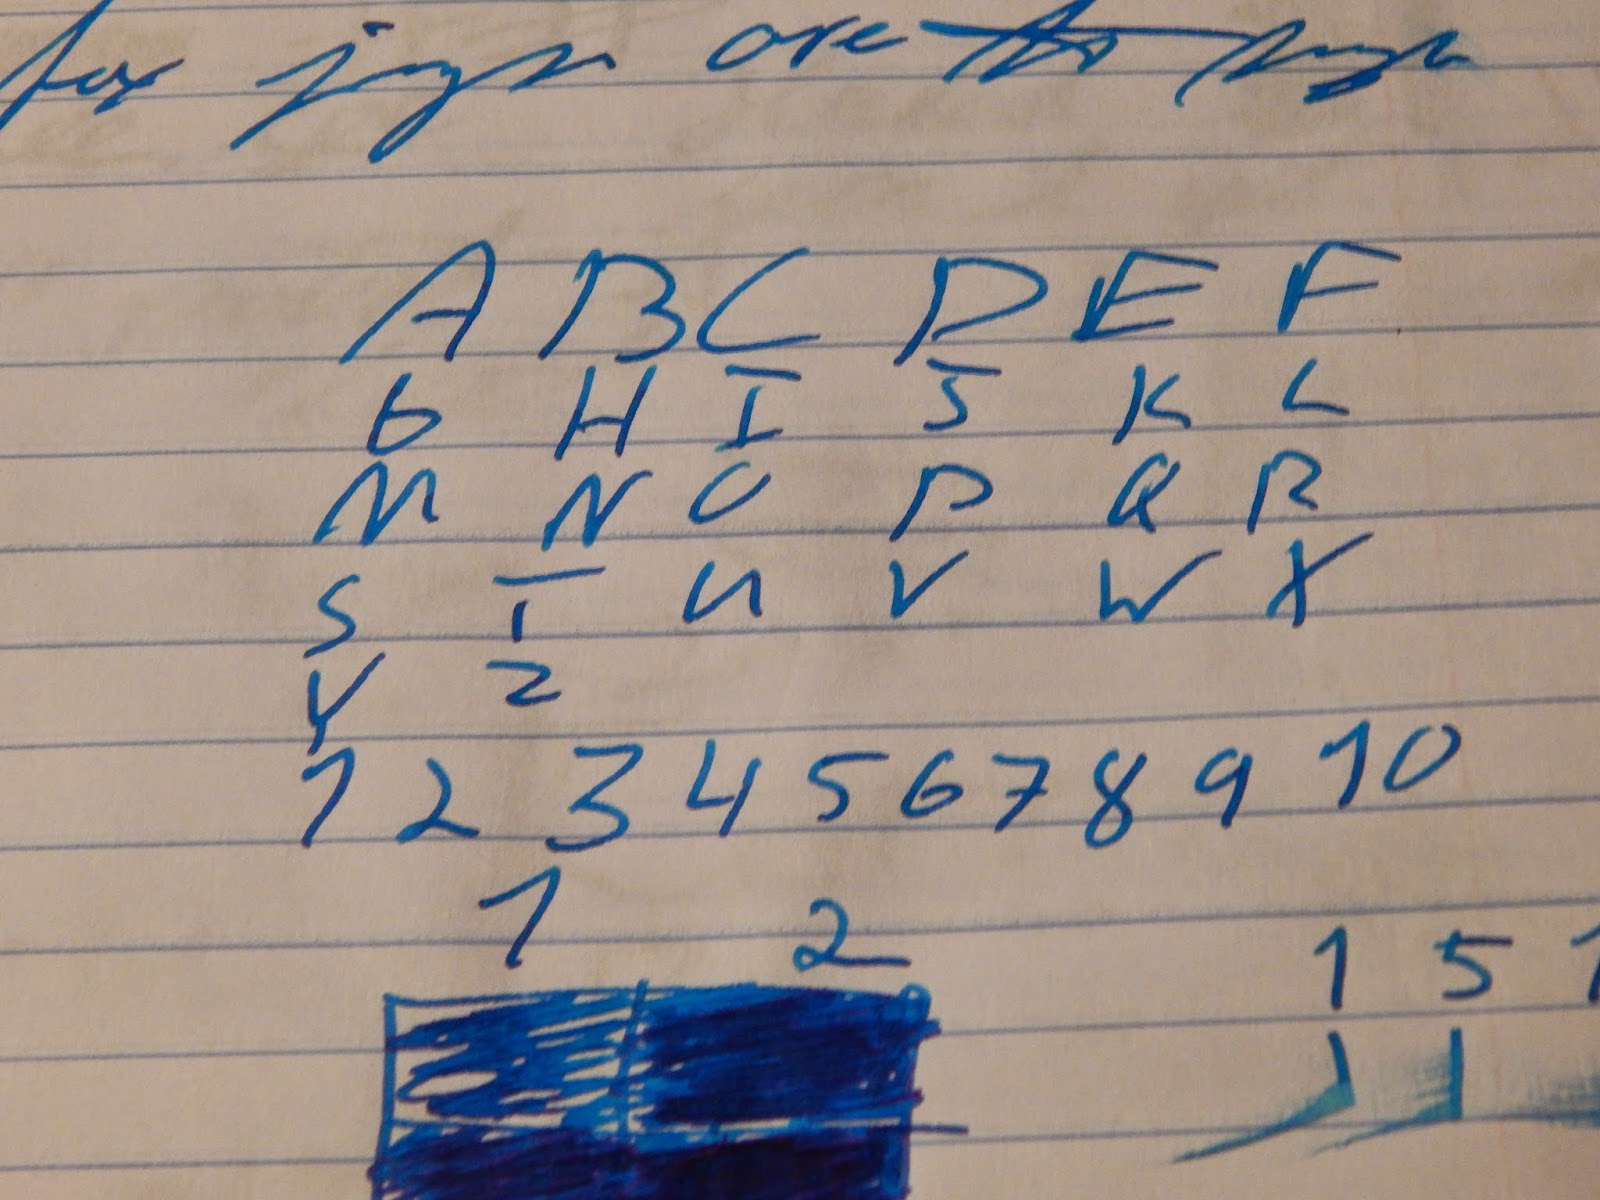 fox jumps over the
A B C D E F
G H I J K L
M N O P Q R
S T U V W X
Y Z
1 2 3 4 5 6 7 8 9 10
1 2
1 5